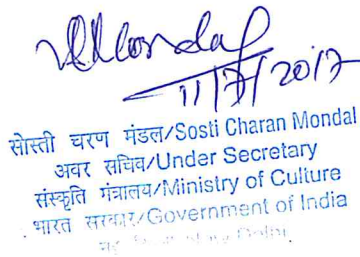 11/7/2017
सोस्ती चरण मंडल/Sosti Charan Mondal
अवर सचिव/Under Secretary
संस्कृति मंत्रालय/Ministry of Culture
भारत सरकार/Government of India